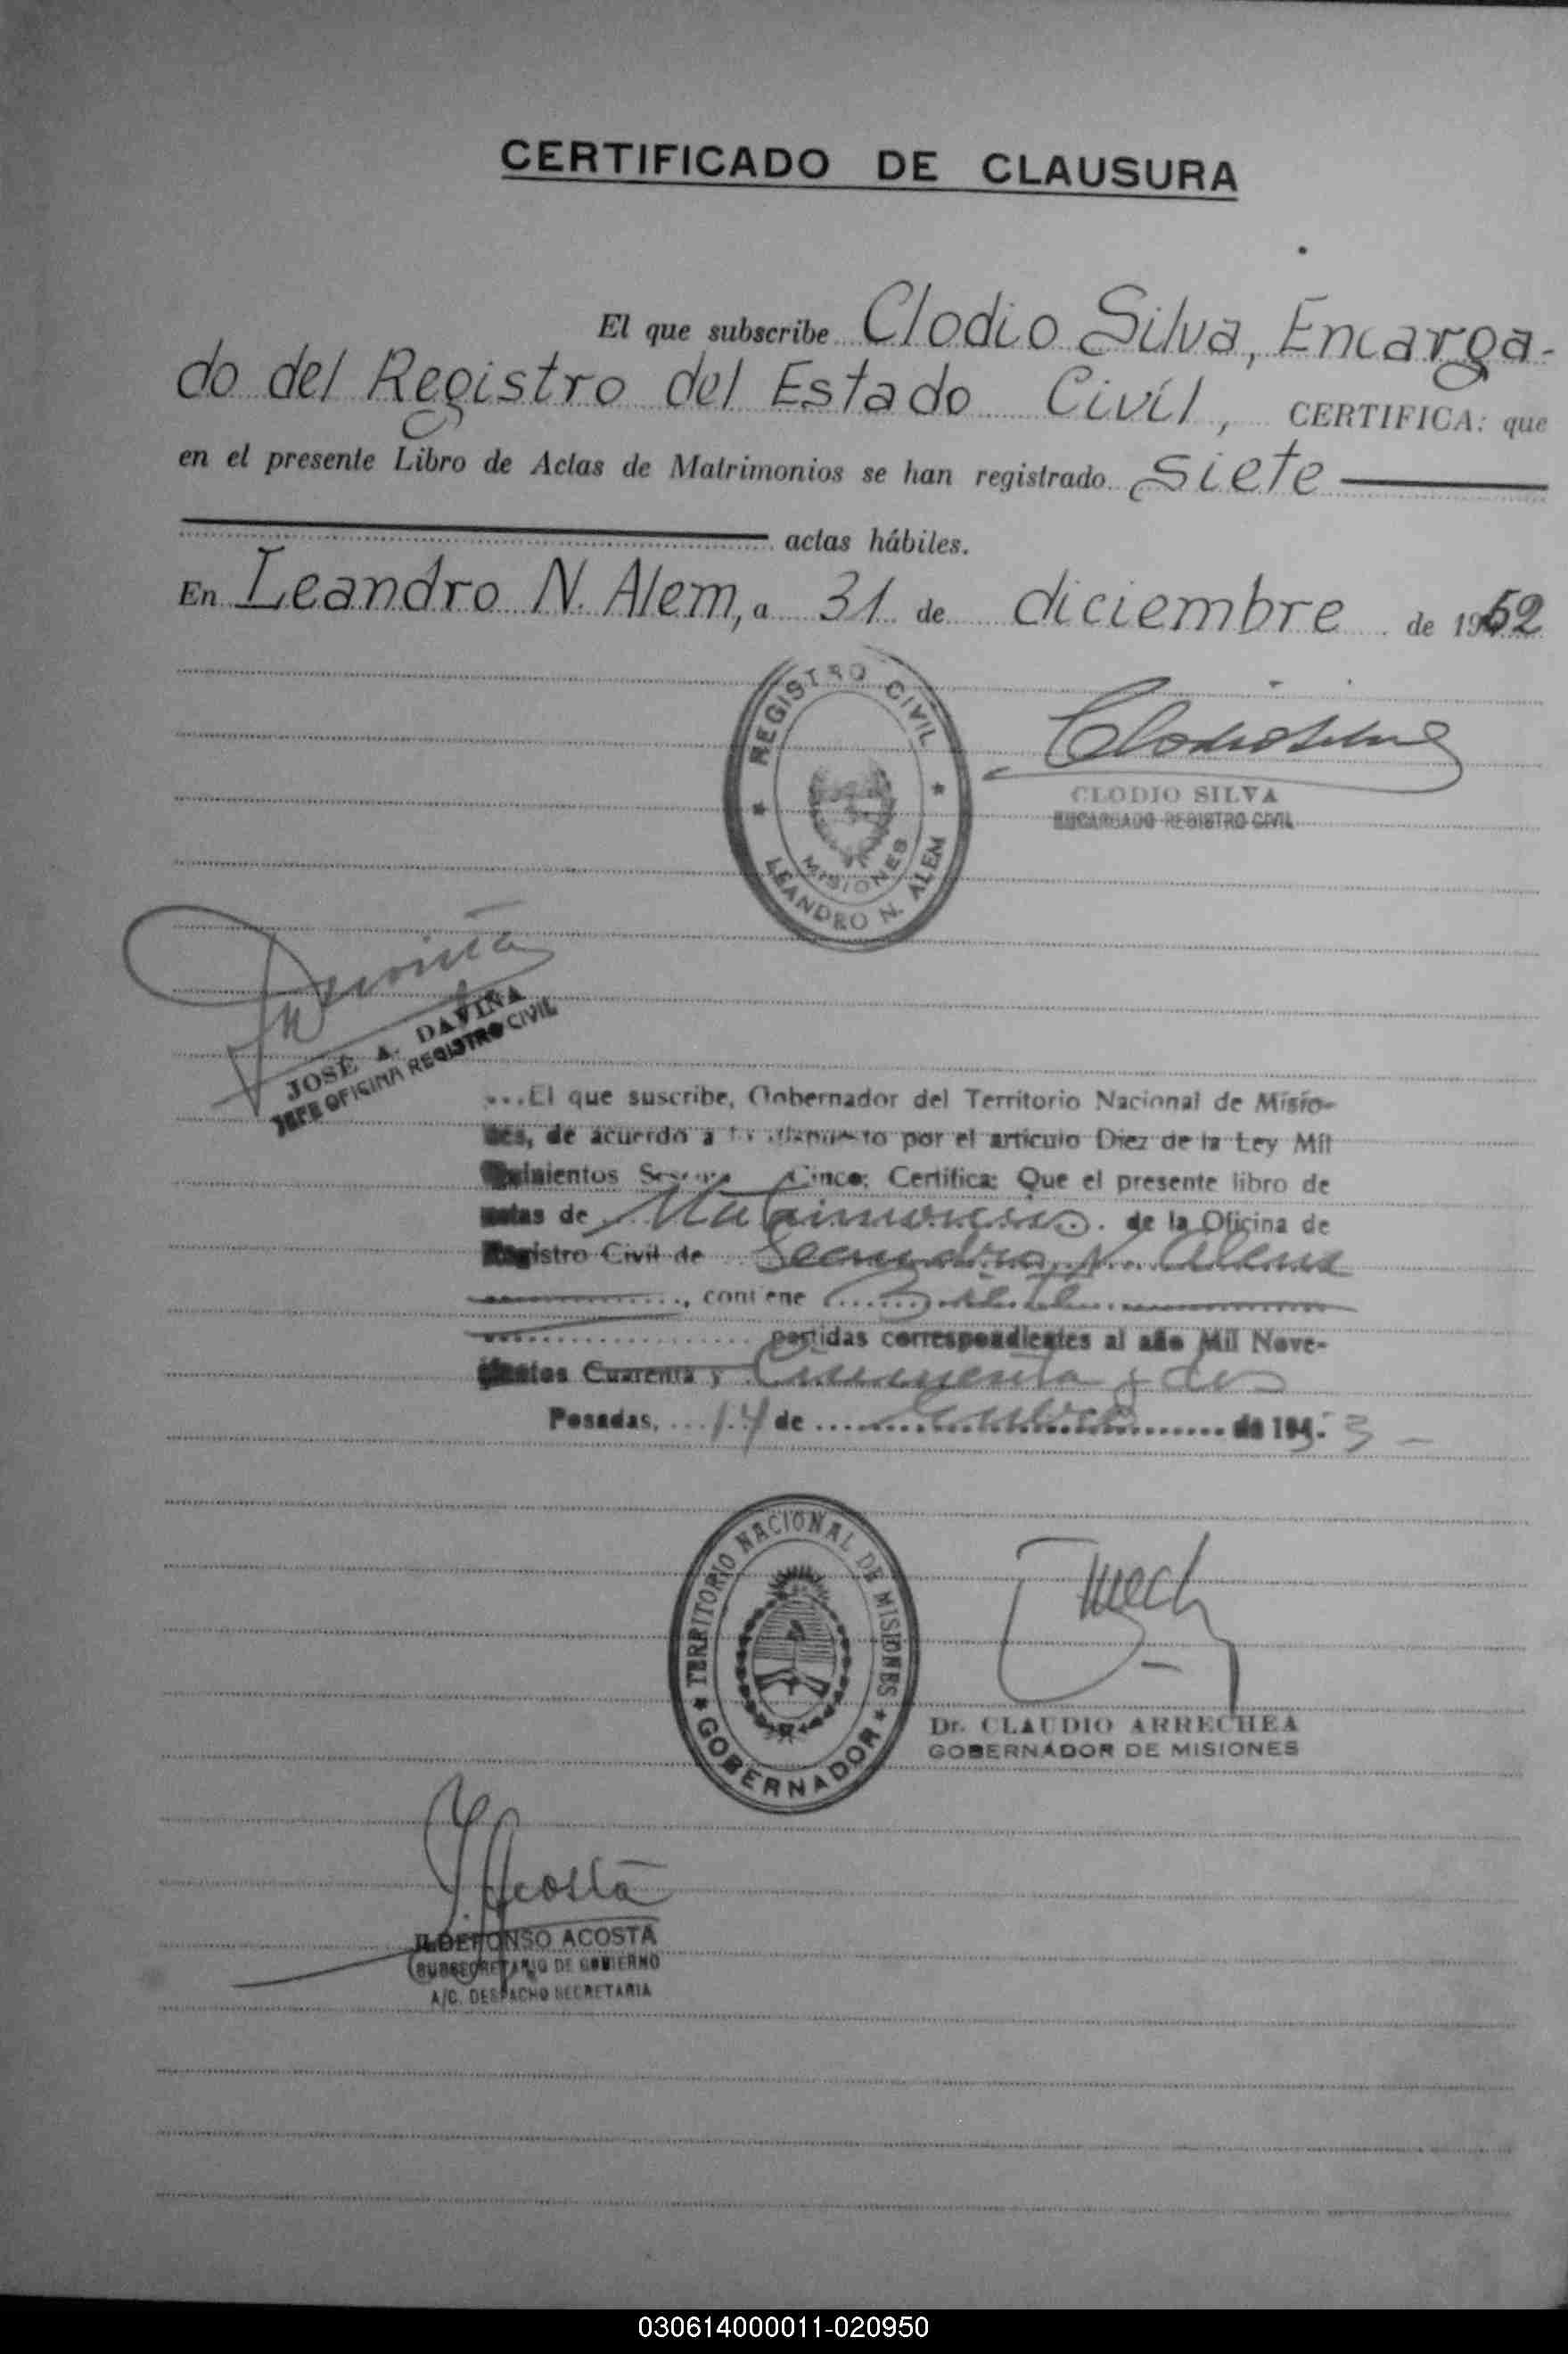 CERTIFICADO DE CLAUSURA
El que subscribe Clodio Silva, Encarga-
do del Registro del Estado Civil, CERTIFICA: que
en el presente Libro de Actas de Matrimonios se han registrado siete
actas hábiles.
En Leandro N. Alem, a 31 de diciembre de 1952
REGISTRO CIVIL
MISIONES
LEANDRO N. ALEM
CLODIO SILVA
ENCARGADO REGISTRO CIVIL
JOSÉ A. DAVIÑA
JEFE OFICINA REGISTRO CIVIL
...El que suscribe, Gobernador del Territorio Nacional de Misio-
nes, de acuerdo a lo dispuesto por el artículo Diez de la Ley Mil
Quinientos Sesenta Cinco; Certifica: Que el presente libro de
actas de Matrimonios de la Oficina de
Registro Civil de Leandro N. Alem
, contiene Siete
partidas correspondientes al año Mil Nove-
cientos Cuarenta y Cincuenta y dos
Posadas, 14 de Enero de 195 3
TERRITORIO NACIONAL DE MISIONES
GOBERNADOR
Dr. CLAUDIO ARRECHEA
GOBERNADOR DE MISIONES
Acosta
ILDEFONSO ACOSTA
SUBSECRETARIO DE GOBIERNO
A/C. DESPACHO SECRETARIA
030614000011-020950